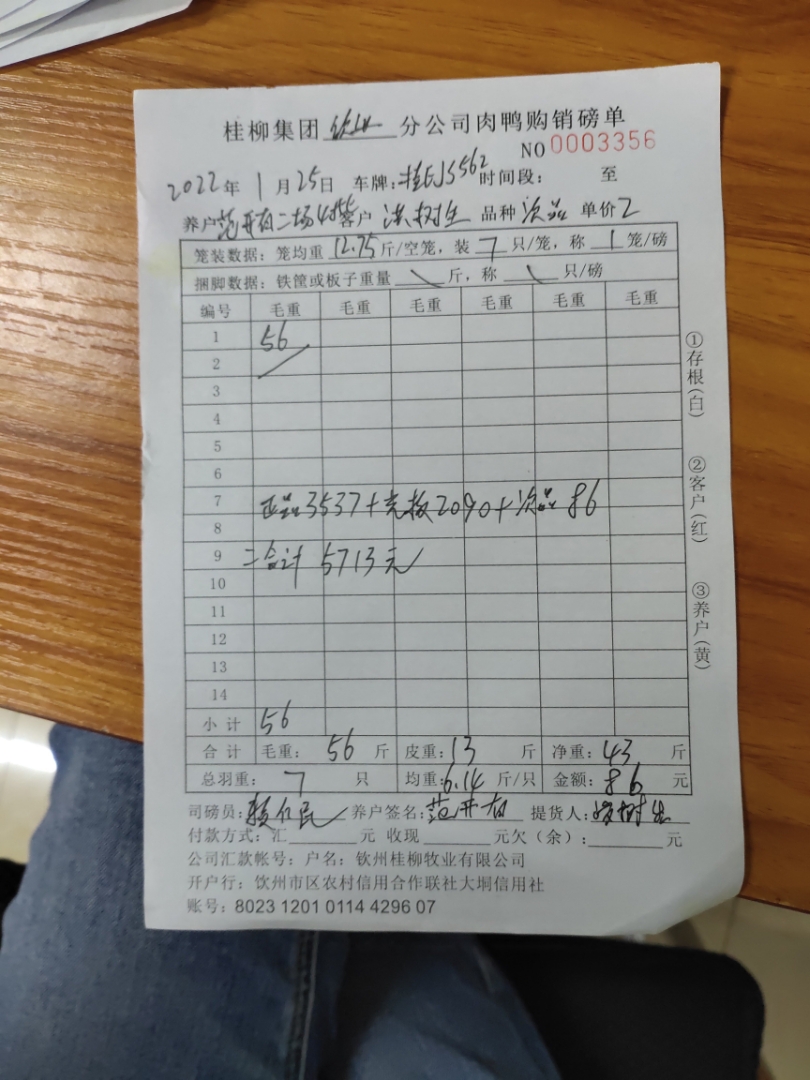 桂柳集团 钦州 分公司肉鸭购销磅单
NO 0003356
2022年 1月 25日 车牌:桂EJS562 时间段: 至
养户 范开有二场4棚 客户 洪树生 品种 次品 单价 2
笼装数据:笼均重 12.75 斤/空笼,装 7 只/笼,称 1 笼/磅
捆脚数据:铁筐或板子重量 \ 斤,称 \ 只/磅
编号 毛重 毛重 毛重 毛重 毛重 毛重
1 56
2
3
4
5
6
7 正品3537+壳板2090+次品86
8
9 =合计 5713元
10
11
12
13
14
小计 56
合计 毛重: 56 斤 皮重:13 斤 净重: 43 斤
总羽重: 7 只 均重:6.14 斤/只 金额: 86 元
司磅员: 养户签名:范开有 提货人: 树生
付款方式:汇 元 收现 元欠(余): 元
公司汇款帐号:户名:钦州桂柳牧业有限公司
开户行:钦州市区农村信用合作联社大垌信用社
账号:8023 1201 0114 4296 07
①存根(白)
②客户(红)
③养户(黄)